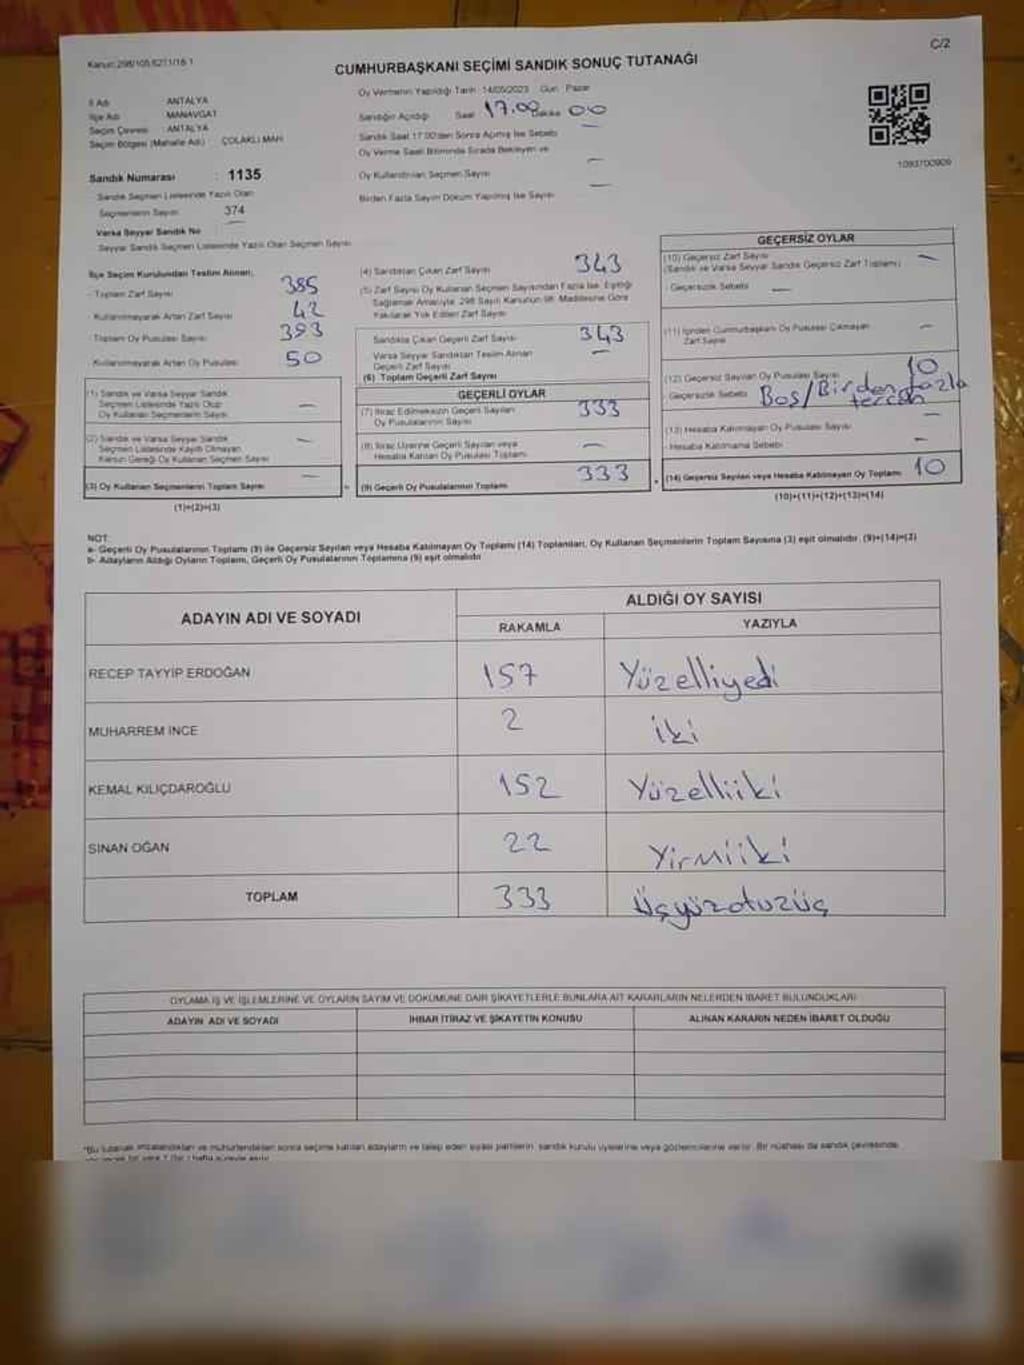 C/2
Kanun:298/105,6271/18-1
CUMHURBAŞKANI SEÇİMİ SANDIK SONUÇ TUTANAĞI
İl Adı ANTALYA
İlçe Adı MANAVGAT
Seçim Çevresi ANTALYA
Seçim Bölgesi (Mahalle Adı) ÇOLAKLI MAH
Sandık Numarası : 1135
Sandık Seçmen Listesinde Yazılı Olan
Seçmenlerin Sayısı 374
Varsa Seyyar Sandık No
Seyyar Sandık Seçmen Listesinde Yazılı Olan Seçmen Sayısı
Oy Vermenin Yapıldığı Tarih 14/05/2023 Gün Pazar
Sandığın Açıldığı Saat 17.00 Dakika 00
Sandık Saat 17.00'den Sonra Açılmış İse Sebebi
Oy Verme Saati Bitiminde Sırada Bekleyen ve
Oy Kullandırılan Seçmen Sayısı
Birden Fazla Sayım Döküm Yapılmış İse Sayısı
1093700909
İlçe Seçim Kurulundan Teslim Alınan;
- Toplam Zarf Sayısı 385
- Kullanılmayarak Artan Zarf Sayısı 42
- Toplam Oy Pusulası Sayısı 393
- Kullanılmayarak Artan Oy Pusulası 50
(1) Sandık ve Varsa Seyyar Sandık
Seçmen Listesinde Yazılı Olup
Oy Kullanan Seçmenlerin Sayısı —
(2) Sandık ve Varsa Seyyar Sandık
Seçmen Listesinde Kayıtlı Olmayan
Kanun Gereği Oy Kullanan Seçmen Sayısı —
(3) Oy Kullanan Seçmenlerin Toplam Sayısı —
(1)+(2)=(3)
(4) Sandıktan Çıkan Zarf Sayısı 343
(5) Zarf Sayısı Oy Kullanan Seçmen Sayısından Fazla İse, Eşitliği
Sağlamak Amacıyla, 298 Sayılı Kanunun 98. Maddesine Göre
Yakılarak Yok Edilen Zarf Sayısı
Sandıkta Çıkan Geçerli Zarf Sayısı 343
Varsa Seyyar Sandıktan Teslim Alınan
Geçerli Zarf Sayısı —
(6) Toplam Geçerli Zarf Sayısı
GEÇERLİ OYLAR
(7) İtiraz Edilmeksizin Geçerli Sayılan
Oy Pusulalarının Sayısı 333
(8) İtiraz Üzerine Geçerli Sayılan veya
Hesaba Katılan Oy Pusulası Toplamı —
(9) Geçerli Oy Pusulalarının Toplamı 333
GEÇERSİZ OYLAR
(10) Geçersiz Zarf Sayısı —
(Sandık ve Varsa Seyyar Sandık Geçersiz Zarf Toplamı)
- Geçersizlik Sebebi —
(11) İçinden Cumhurbaşkanı Oy Pusulası Çıkmayan —
Zarf Sayısı
(12) Geçersiz Sayılan Oy Pusulası Sayısı 10
- Geçersizlik Sebebi Boş/Birden fazla
tercih
(13) Hesaba Katılmayan Oy Pusulası Sayısı —
- Hesaba Katılmama Sebebi —
(14) Geçersiz Sayılan veya Hesaba Katılmayan Oy Toplamı 10
(10)+(11)+(12)+(13)=(14)
NOT:
a- Geçerli Oy Pusulalarının Toplamı (9) ile Geçersiz Sayılan veya Hesaba Katılmayan Oy Toplamı (14) Toplamları, Oy Kullanan Seçmenlerin Toplam Sayısına (3) eşit olmalıdır. (9)+(14)=(3)
b- Adayların Aldığı Oyların Toplamı, Geçerli Oy Pusulalarının Toplamına (9) eşit olmalıdır
ADAYIN ADI VE SOYADI ALDIĞI OY SAYISI
RAKAMLA YAZIYLA
RECEP TAYYİP ERDOĞAN 157 Yüzelliyedi
MUHARREM İNCE 2 iki
KEMAL KILIÇDAROĞLU 152 Yüzelliiki
SİNAN OĞAN 22 Yirmiiki
TOPLAM 333 Üçyüzotuzüç
OYLAMA İŞ VE İŞLEMLERİNE VE OYLARIN SAYIM VE DÖKÜMÜNE DAİR ŞİKAYETLERLE BUNLARA AİT KARARLARIN NELERDEN İBARET BULUNDUKLARI
ADAYIN ADI VE SOYADI İHBAR İTİRAZ VE ŞİKAYETİN KONUSU ALINAN KARARIN NEDEN İBARET OLDUĞU
*Bu tutanak imzalandıktan ve mühürlendikten sonra seçime katılan adayların ve talep eden siyasi partilerin, sandık kurulu üyelerine veya gözlemcilerine verilir. Bir nüshası da sandık çevresinde